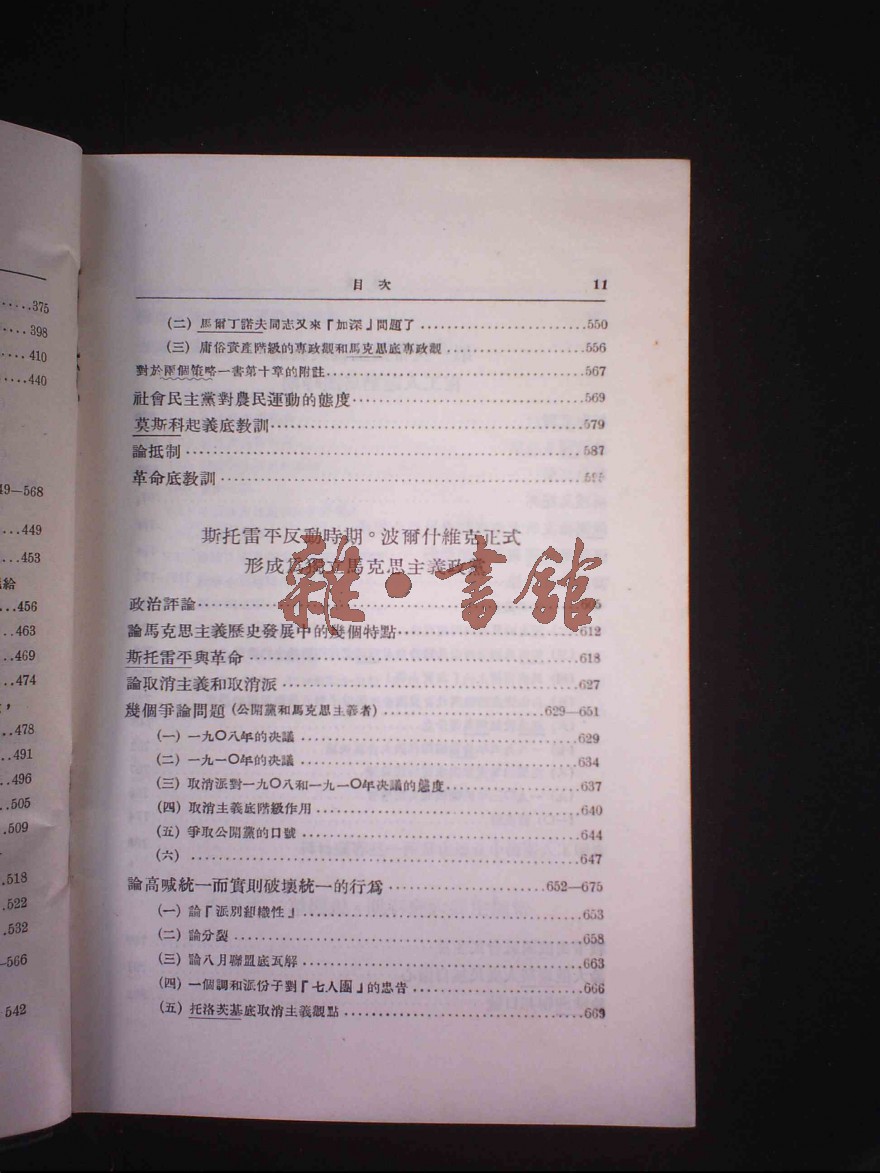 ...375
...398
...410
...440
49—568
...449
...453
給
...456
...463
...469
...474
...478
...491
...496
...505
...509
...518
...522
...532
—566
542
目次 11
(二) 馬爾丁諾夫同志又來『加深』問題了...550
(三) 庸俗資產階級的專政觀和馬克思底專政觀...556
對於兩個策略一書第十章的附註...567
社會民主黨對農民運動的態度...569
莫斯科起義底教訓...579
論抵制...587
革命底教訓...595
斯托雷平反動時期。波爾什維克正式
形成爲獨立馬克思主義政黨
雜·書館
政治評論...605
論馬克思主義歷史發展中的幾個特點...612
斯托雷平與革命...618
論取消主義和取消派...627
幾個爭論問題(公開黨和馬克思主義者)...629—651
(一) 一九〇八年的决議...629
(二) 一九一〇年的决議...634
(三) 取消派對一九〇八和一九一〇年决議的態度...637
(四) 取消主義底階級作用...640
(五) 爭取公開黨的口號...644
(六)...647
論高喊統一而實則破壞統一的行爲...652—675
(一) 論『派別組織性』...653
(二) 論分裂...658
(三) 論八月聯盟底瓦解...663
(四) 一個調和派份子對『七人團』的忠告...666
(五) 托洛茨基底取消主義觀點...669